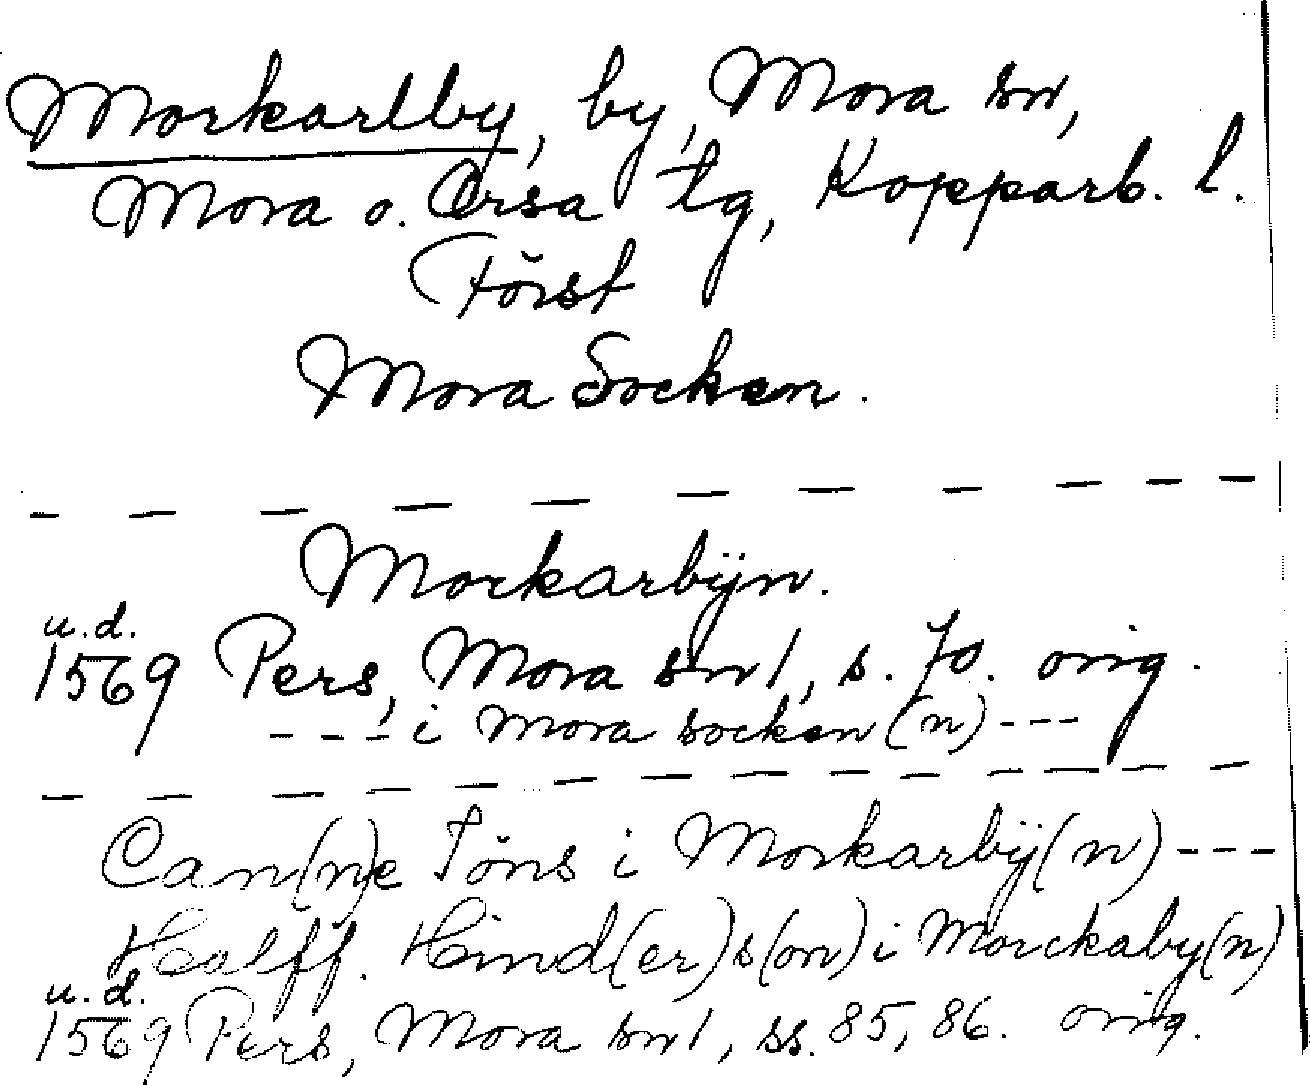 Morkarlby, by, Mora sn,
Mora o. Orsa tg, Kopparb. l.
Först
Mora Socken.
Morkarbÿn.
u.d.
1569 Pers, Mora snl, s. 70. orig.
--- i Mora socken(n) ---
Can(n)e Töns i Morkarbÿ(n) ---
Halff. Hind(er)s(on) i Morckaby(n)
u.d.
1569 Pers, Mora snl, ss. 85, 86. orig.